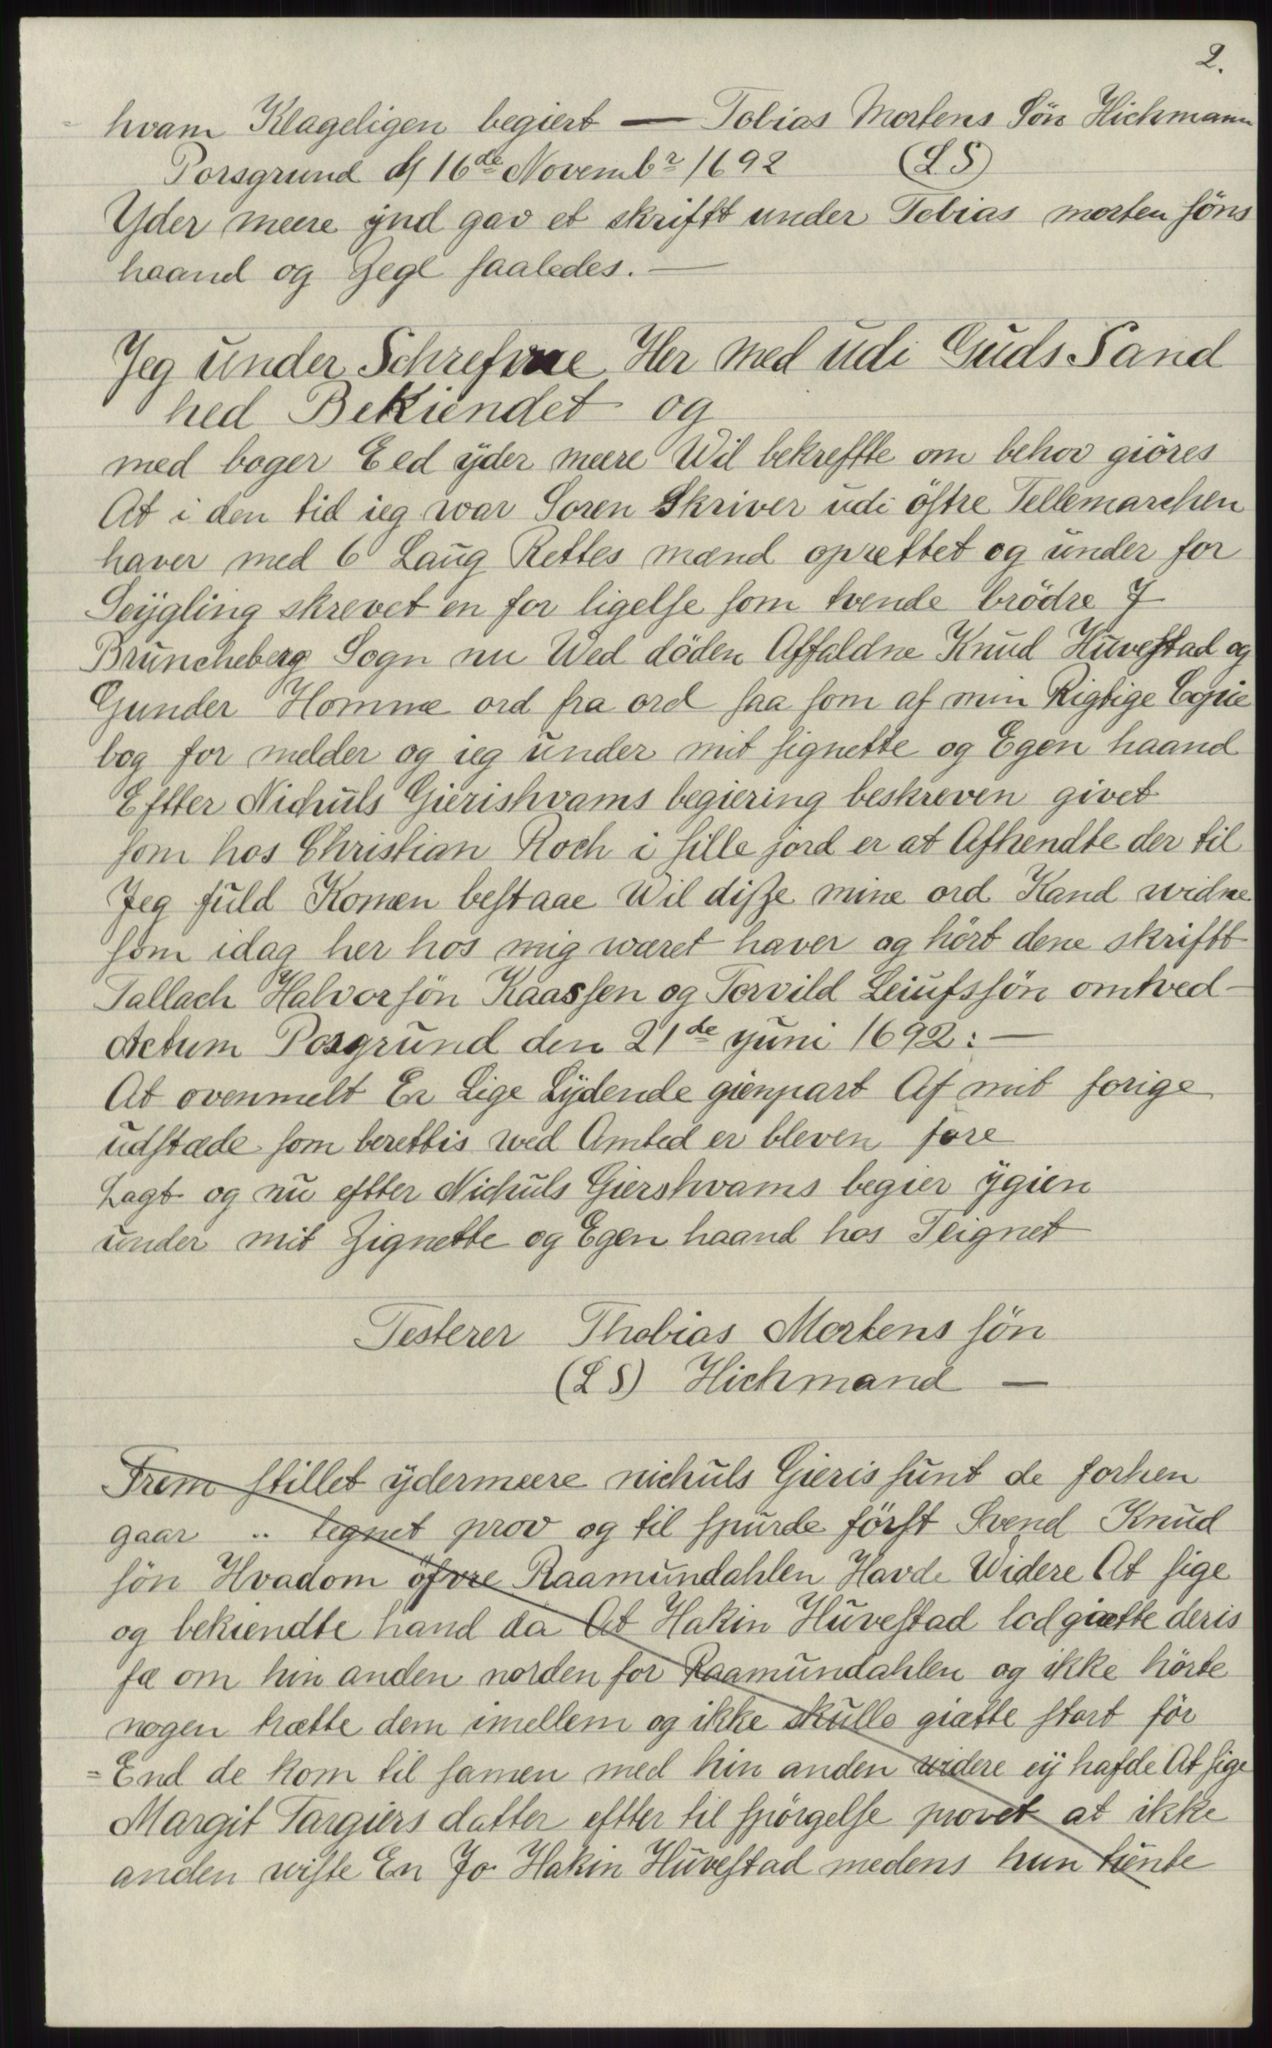 2.
hvam Klageligen begiert — Tobias Mortens Søn Hichmann
Porsgrund d 16de Novembr 1692 (L S)
Yder meere ÿnd gav et skrifft under Tobias morten søns
haand og Zegl saaledes. —
Jeg under Schrefvne Her med udi Guds Sand
hed BeKiendet og
med boger Eed ÿder meere Wil bekreffte om behov giöres
At i den tid ieg war Soren Skriver udi östre Tellemarchen
haver med 6 Laug Rettes mænd oprettet og under for
Seijgling skrevet en for ligelse som tvende brödre J
Bruncheberg Sogn nu Wed döden Affaldne Knud Huvestad og
Gunder Homme ord fra ord saa som af min Rigtige Copie
bog for melder og ieg under mit signette og Egen haand
Effter Nichuls Gierishvams begiering beskreven givet
som hos Christian Roch i sille jord er at Afhendte der til
Jeg fuld Komen bestaae Wil disze mine ord Kand widne
som idag her hos mig wæret haver og hört dene skrifft
Tallach Halvorsön Kaassen og Torvild Leiufssön omtved —
Actum Posgrund den 21de yuni 1692: —
At ovenmelt Er Lige Lÿdende gienpart Af mit forige
udstæde som berettis wed Amted er bleven fore
Lagt og nu effter Nichuls Giershvams begier ÿgien
under mit Zignette og Egen haand hos Teignet
Testerer Thobias Mortens sön
(L S) Hichmand —
Frem stillet ÿdermeere nichuls Gieris sunt de forhen
gaar .. tegnet prov og til spurde först Svend Knud
sön Hvadom öfvre Raamundahlen Havde Widere At sige
og bekiendte hand da At Hakin Huvestad lod giætte deris
fæ om hin anden norden for Raamundahlen og ikke hörte
nogen trætte dem imellem og ikke skulle giætte stort för
= End de kom til samen med hin anden widere eÿ hafde At sige
Margit Targiers datter efter til spörgelse provet at ikke
anden wiste En Jo Hakin Huvestad medens hun tiente